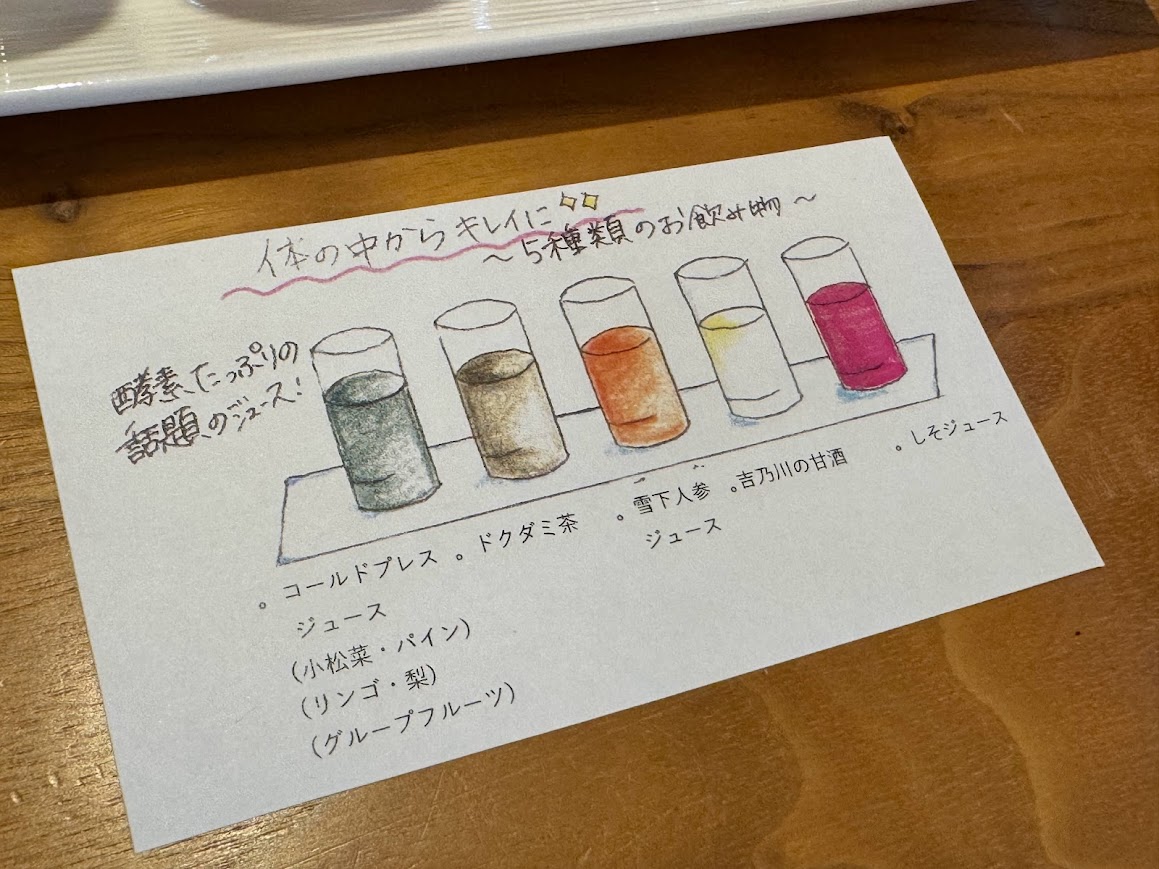 体の中からキレイに
～5種類のお飲み物～
酵素たっぷりの
話題のジュース!
。コールドプレス
ジュース
(小松菜・パイン)
(リンゴ・梨)
(グループフルーツ)
。ドクダミ茶
。雪下人参
ジュース
。吉乃川の甘酒
。しそジュース